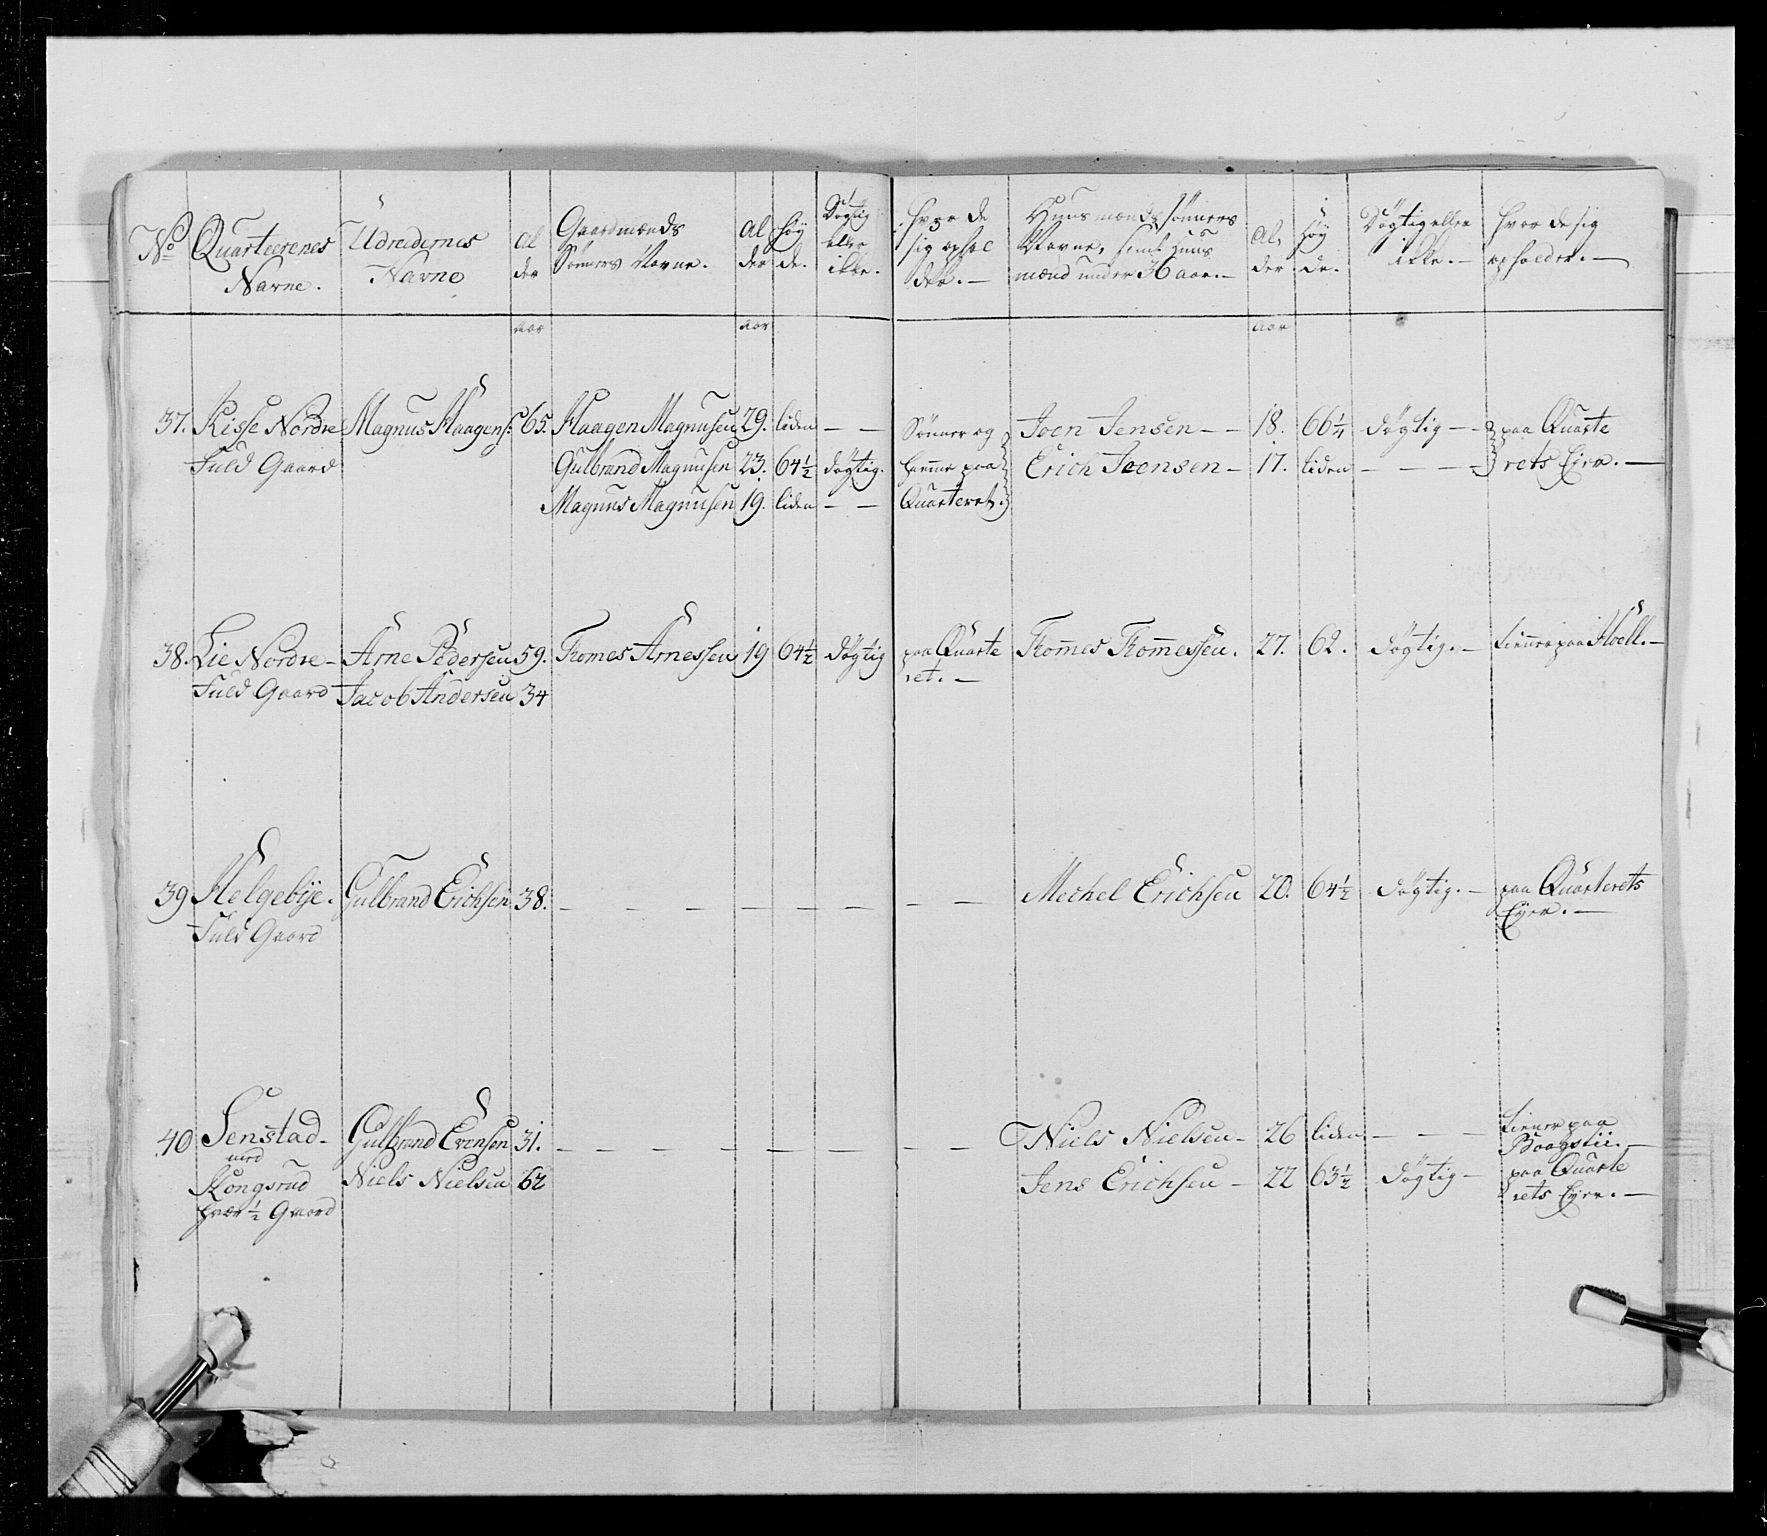 No Quarteerenes Navne. Udredernes Navne Al der Gaardmænds Sønners Navne. Al der Høy de. Dygtig eller ikke. Hvor de sig ophol der. — Huusmænds sønners Navne, samt Huus mænd under 36 aar. — Al, der Høy de. Dygtig eller ikke. — Hvor de sig opholder. —
aar aar aar
37. Risse Nordre Magnus Haagens: 65. Haagen Magnusen 29. liden — — Sønner og Joen Jensen — — 18. 66 1/4 dygtig — — paa Quarte
Fuld Gaard Gulbrand Magnusen 23. 64 1/2 dygtig. hiemme paa Erich Joensen — 17. liden — — — — rets Eyer. —
Magnus Magnusen 19. liden — — Quarteret.
38. Lie Nordre — Arne Pedersen 59. Tromes Arnessen 19 64 1/2 dygtig paa Quarte Tromes Tromessen. 27. 62. dygtig. — tienner paa Hoell. —
Fuld Gaard Jacob Andersen 34 ret. —
39 Helgebye. Gulbrand Erichsen 38. — — — — — — — — Mechel Erichsen 20. 64 1/2 dygtig. — paa Quarterets
Fuld Gaard Eyer. —
40 Senstad — Gulbrand Evensen 31. — — — — — — — — Niels Nielsen — 26 liden — — — tiener paa
med Baagstii. —
Kongsrud Niels Nielsen 62 Jens Erichsen — 22 63 1/2 dygtig — paa Quarte
hver 1/2 Gaard rets Eyer. —